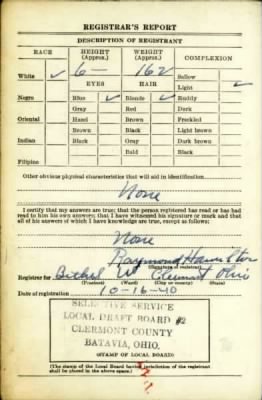 REGISTRAR'S REPORT
DESCRIPTION OF REGISTRANT
RACE HEIGHT (Approx.) WEIGHT (Approx.) COMPLEXION
6 — 162 Sallow
White ✓ EYES HAIR Light ✓
Negro Blue ✓ Blonde ✓ Ruddy
Gray Red Dark
Oriental Hazel Brown Freckled
Brown Black Light brown
Indian Black Gray Dark brown
Bald Black
Filipino
Other obvious physical characteristics that will aid in identification
None
I certify that my answers are true; that the person registered has read or has had
read to him his own answers; that I have witnessed his signature or mark and that
all of his answers of which I have knowledge are true, except as follows:
None
Raymond Hamilton
(Signature of registrar)
Registrar for Bethel W Clermont Ohio
(Precinct) (Ward) (City or county) (State)
Date of registration 10-16-40
SELECTIVE SERVICE
LOCAL DRAFT BOARD #2
CLERMONT COUNTY
BATAVIA, OHIO.
(STAMP OF LOCAL BOARD)
(The stamp of the Local Board having jurisdiction of the registrant
shall be placed in the above space.)